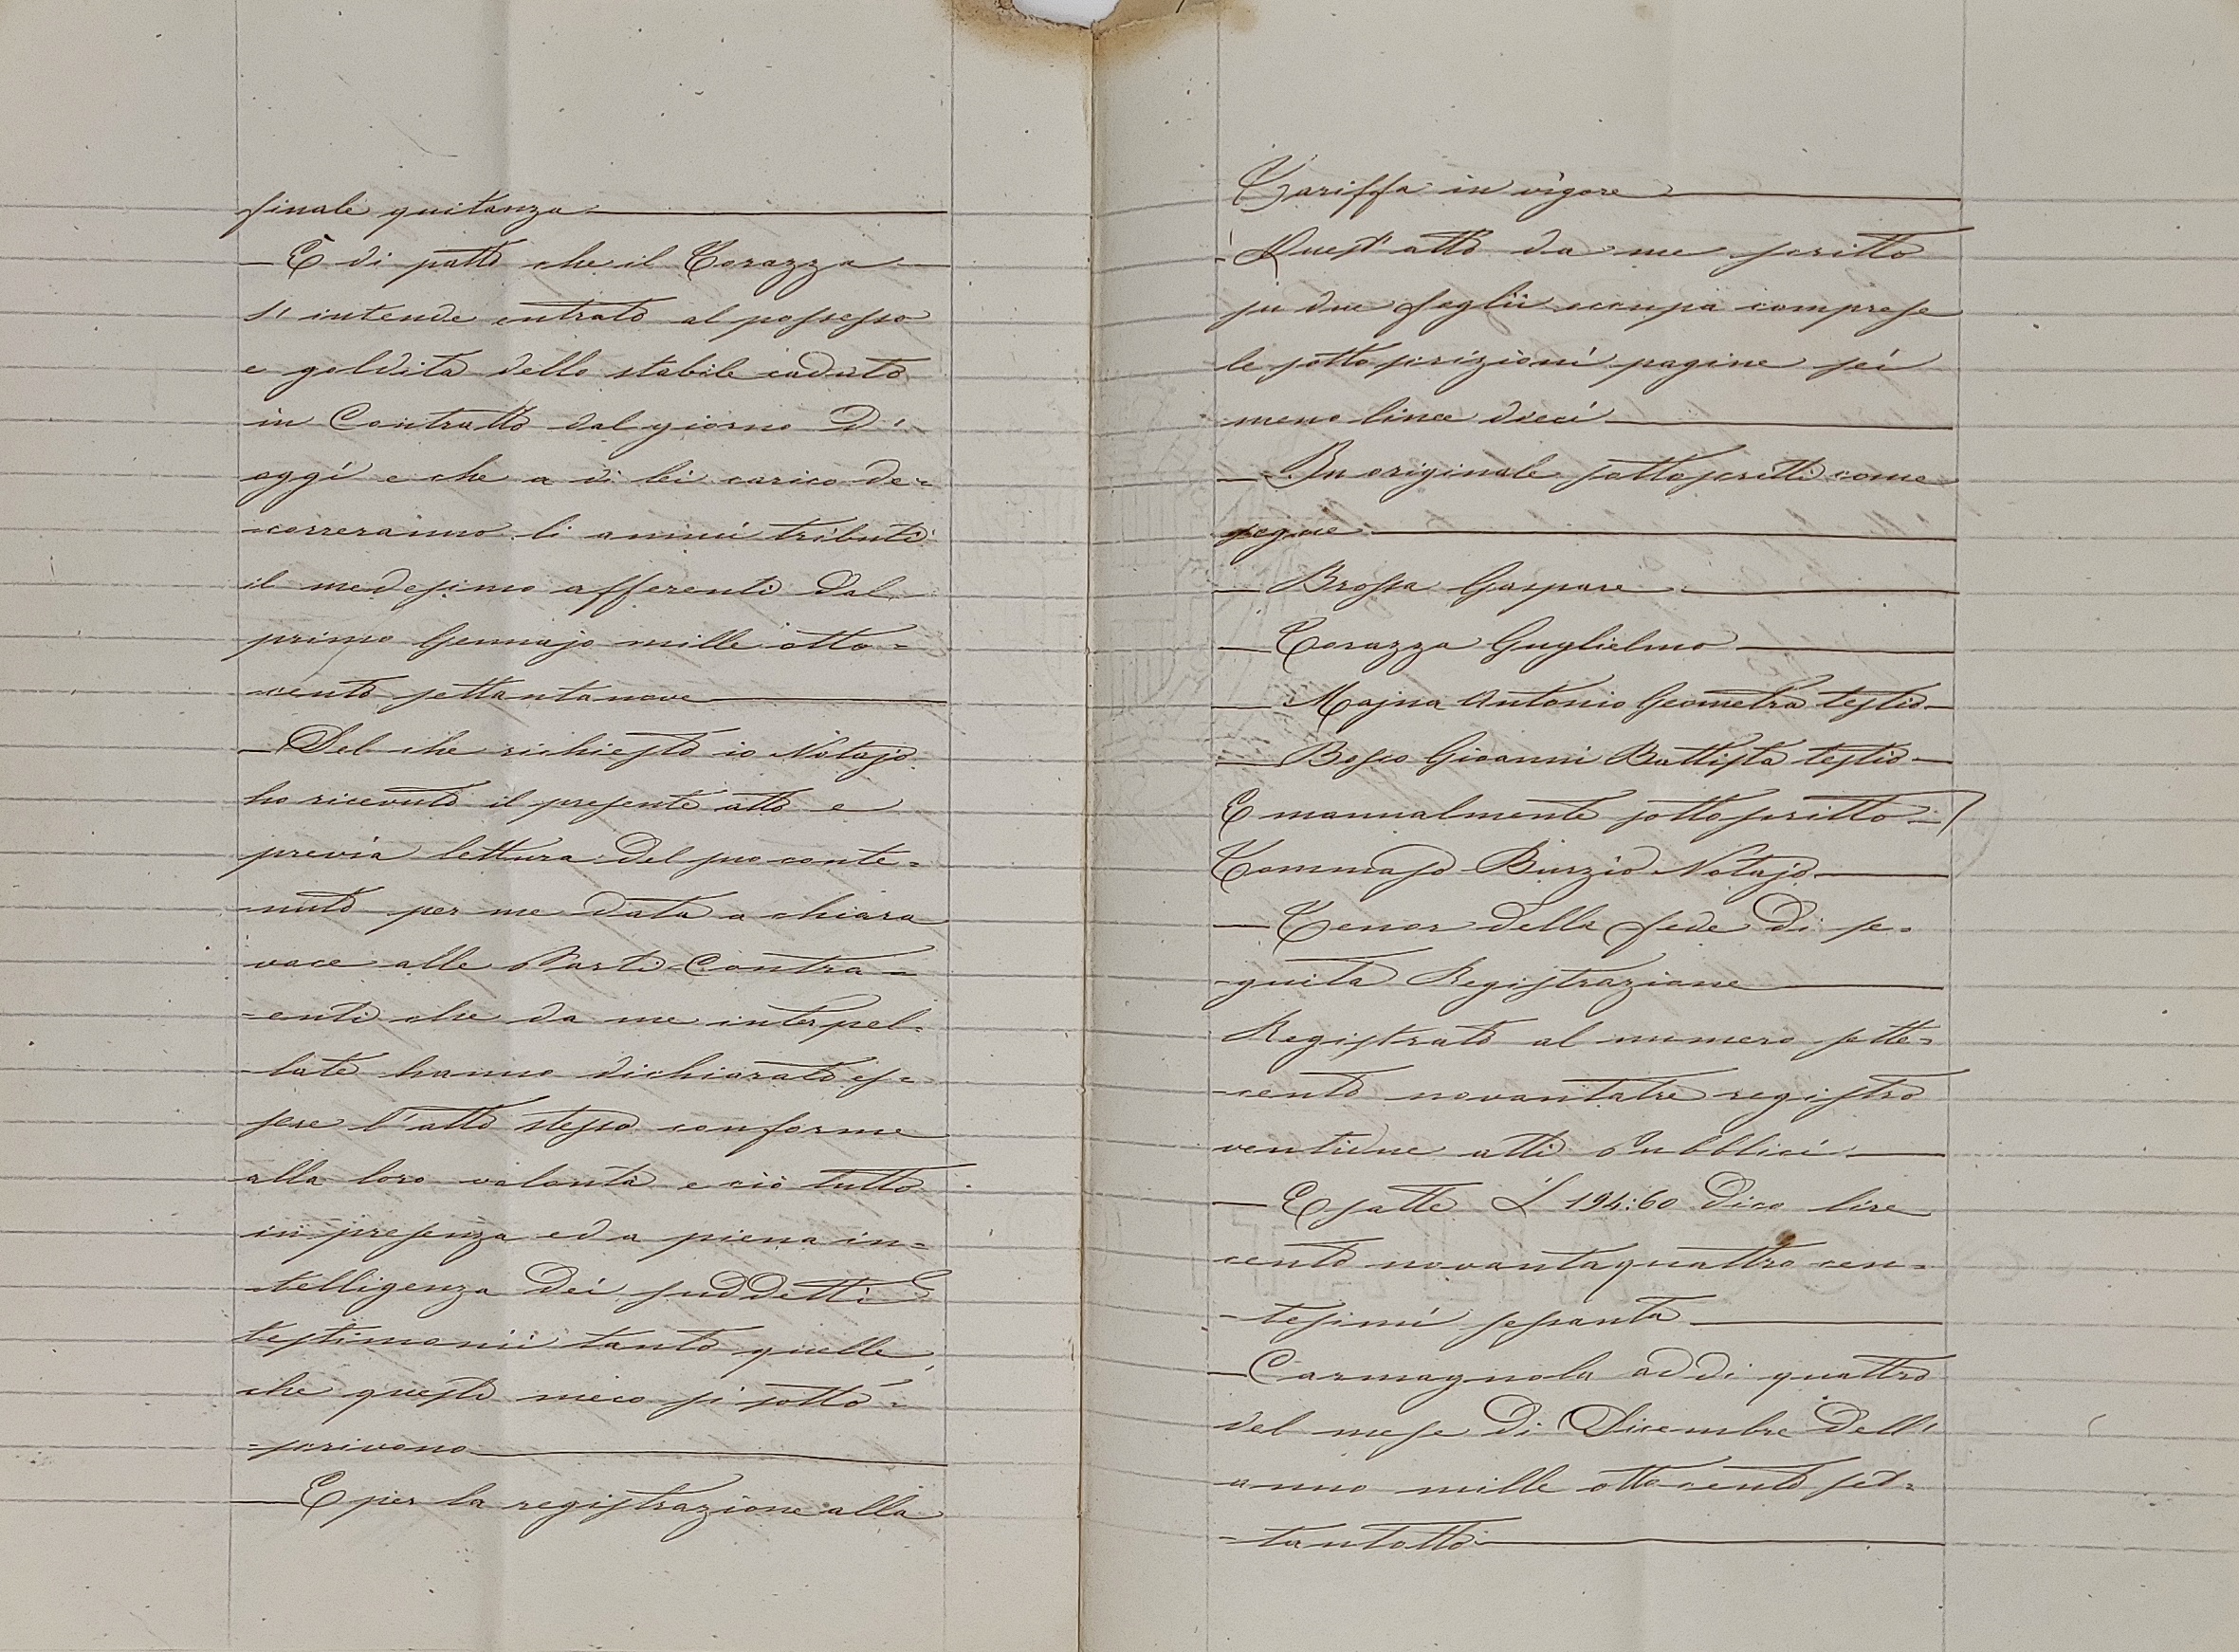 finale quitanza
È di patto che il Corazza
s'intende entrato al possesso
e goldita dello stabile caduto
in Contratto dal giorno d'
oggi e che a di lei carico de=
=correranno li annui tributi
il medesimo afferenti dal
primo Gennajo mille otto=
=cento settantanove
Del che richiesto io Notajo
ho ricevuto il presente atto e
previa lettura del suo conte=
=nuto per me data a chiara
voce alle Parti Contra=
=enti che da me interpel=
late hanno dichiarato es=
sere l'atto stesso conforme
alla loro volontà e ciò tutto
in presenza ed a piena in=
=telligenza dei suddetti
testimonii tanto quelle
che questi meco si sotto=
=scrivono
E per la registrazione alla
Tariffa in vigore
Quest'atto da me scritto
su due foglii occupa comprese
le sottoscrizioni pagine sei
meno linee dieci
In originale sottoscritti come
segue
Brossa Gaspare
Corazza Guglielmo
Majna Antonio Geometra testio
Bosco Gioanni Battista testio
E manualmente sottoscritto
Tommaso Burzio Notajo
Tenor della fede di se=
=guita Registrazione
Registrato al numero sette=
=cento novantatre registro
ventidue atti Pubblici
Esatte L 194:60 dico lire
cento novantaquattro cen=
=tesimi sessanta
Carmagnola addi quattro
del mese di Dicembre dell'
anno mille ottocento set=
=tantotto